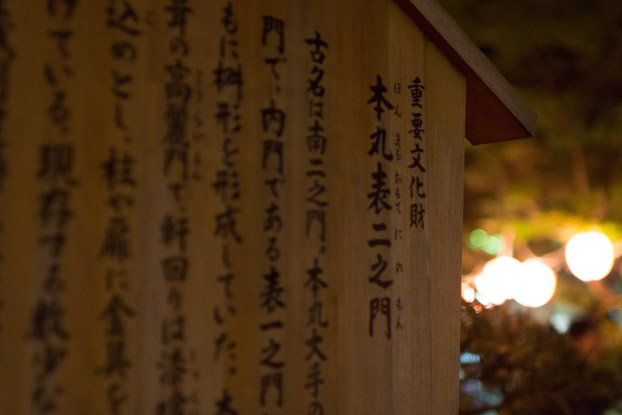 重要文化財
本丸表二之門
ほんまるおもてにのもん
古名は南二之門。本丸大手の
門で、内門である表一之門と
もに桝形を形成していた。本
葺の高麗門で軒回りは漆喰
こうらいもん
込めとし、柱や扉に金具を
けている。現存する数少な